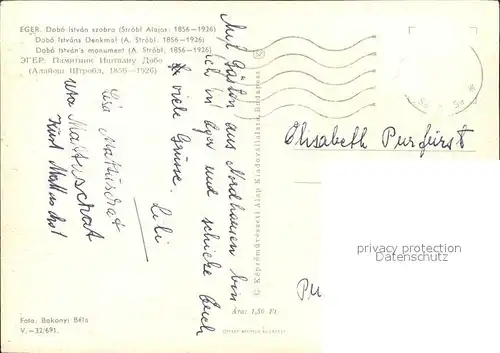 EGER. Dobó István szobra (Stróbl Alajos: 1856-1926)
Dobó Istváns Denkmal (A. Stróbl, 1856-1926)
Dobó István's monument (A. Stróbl, 1856-1926)
ЭГЕР. Памятник Иштвану Добо
(Алайош Штробл, 1856-1926)
Mit Gästen aus Nordhausen bin
ich in Eger und schicke Euch
viele Grüsse.
Lili
Lisa Mattuschat
Uta Mattuschat
Kurt Mattuschat
© Képzőművészeti Alap Kiadóvállalata, Budapest
Elisabeth Purfürst
privacy protection
Datenschutz
Pu
Ára: 1,50 Ft
Foto: Bakonyi Béla
V.-32/691.